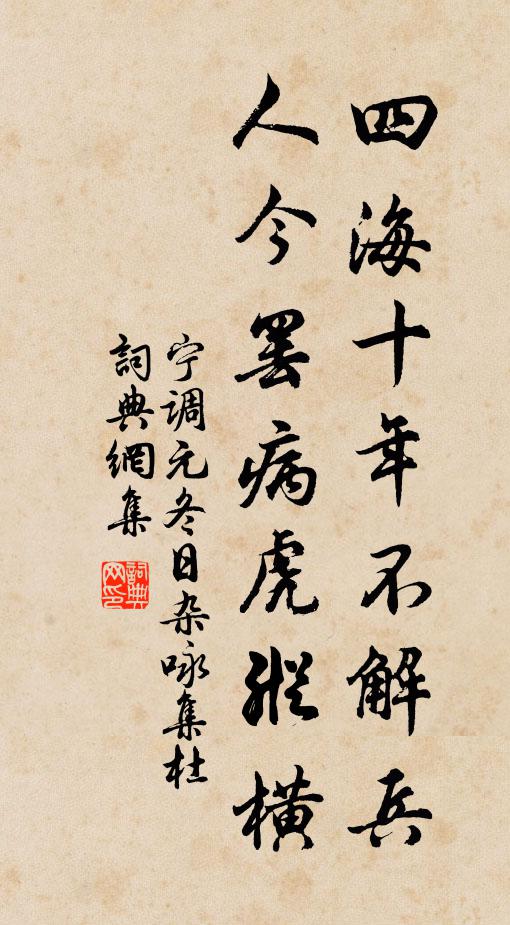 四海十年不解兵
人今罢病虎縱橫
宁调元冬日杂咏集杜
詞典網集
詞典
网印